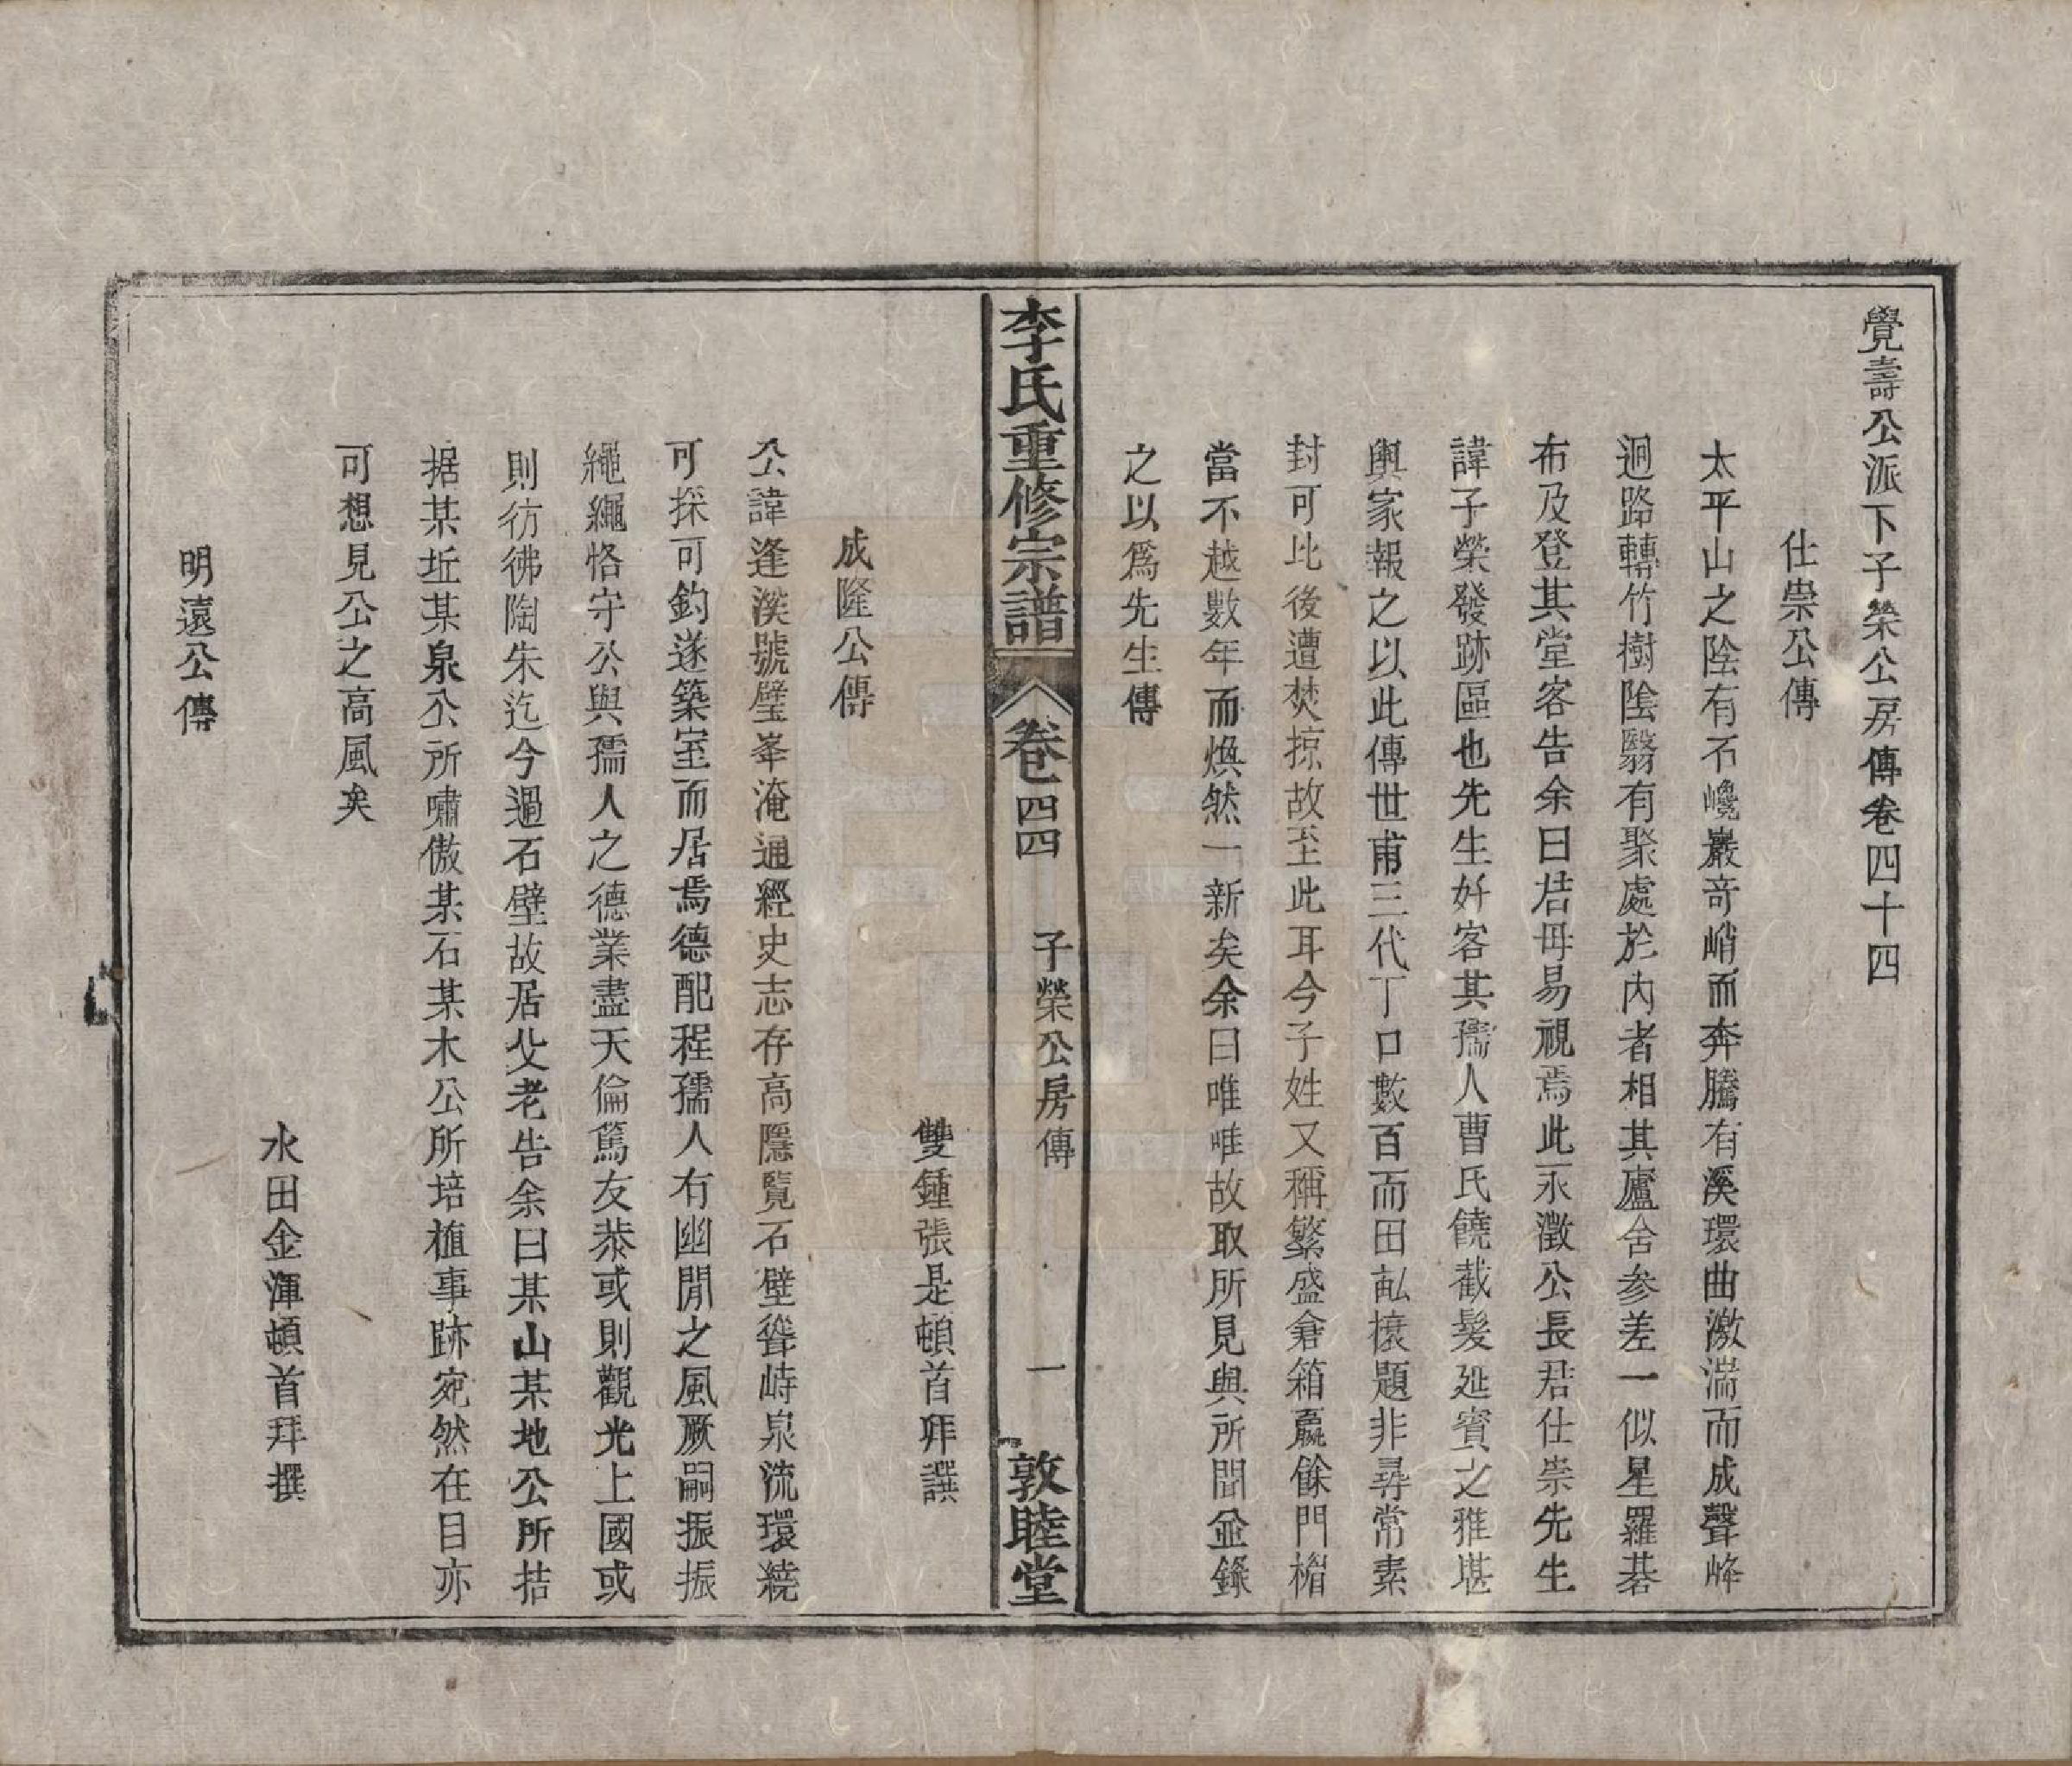 覺壽公派下子榮公房傳卷四十四
仕崇公傳
太平山之陰有石巉巖奇峭而奔騰有溪環曲激湍而成聲峰
迴路轉竹樹陰翳有聚處於內者相其廬舍参差一似星羅碁
布及登其堂客告余曰君毋易視焉此永澂公長君仕崇先生
諱子榮發跡區也先生好客其孺人曹氏饒截髮延賓之雅堪
與家報之以此傳世甫三代丁口數百而田畝攘題非尋常素
封可比後遭焚掠故至此耳今子姓又稱繁盛倉箱羸餘門楣
當不越數年而煥然一新矣余曰唯唯故取所見與所聞並錄
之以爲先生傳
李氏重修宗譜
卷四四
子榮公房傳
一
敦睦堂
雙鍾張是頓首拜譔
成隆公傳
公諱逢溪號璧峯淹通經史志存高隱覽石壁聳峙泉流環繞
可採可釣遂築室而居焉德配程孺人有幽閒之風厥嗣振振
繩繩恪守公與孺人之德業盡天倫篤友恭或則觀光上國或
則彷彿陶朱迄今過石壁故居父老告余曰某山某地公所拮
据某坵某泉公所嘯傲某石某木公所培植事跡宛然在目亦
可想見公之高風矣
水田金渾頓首拜撰
明遠公傳